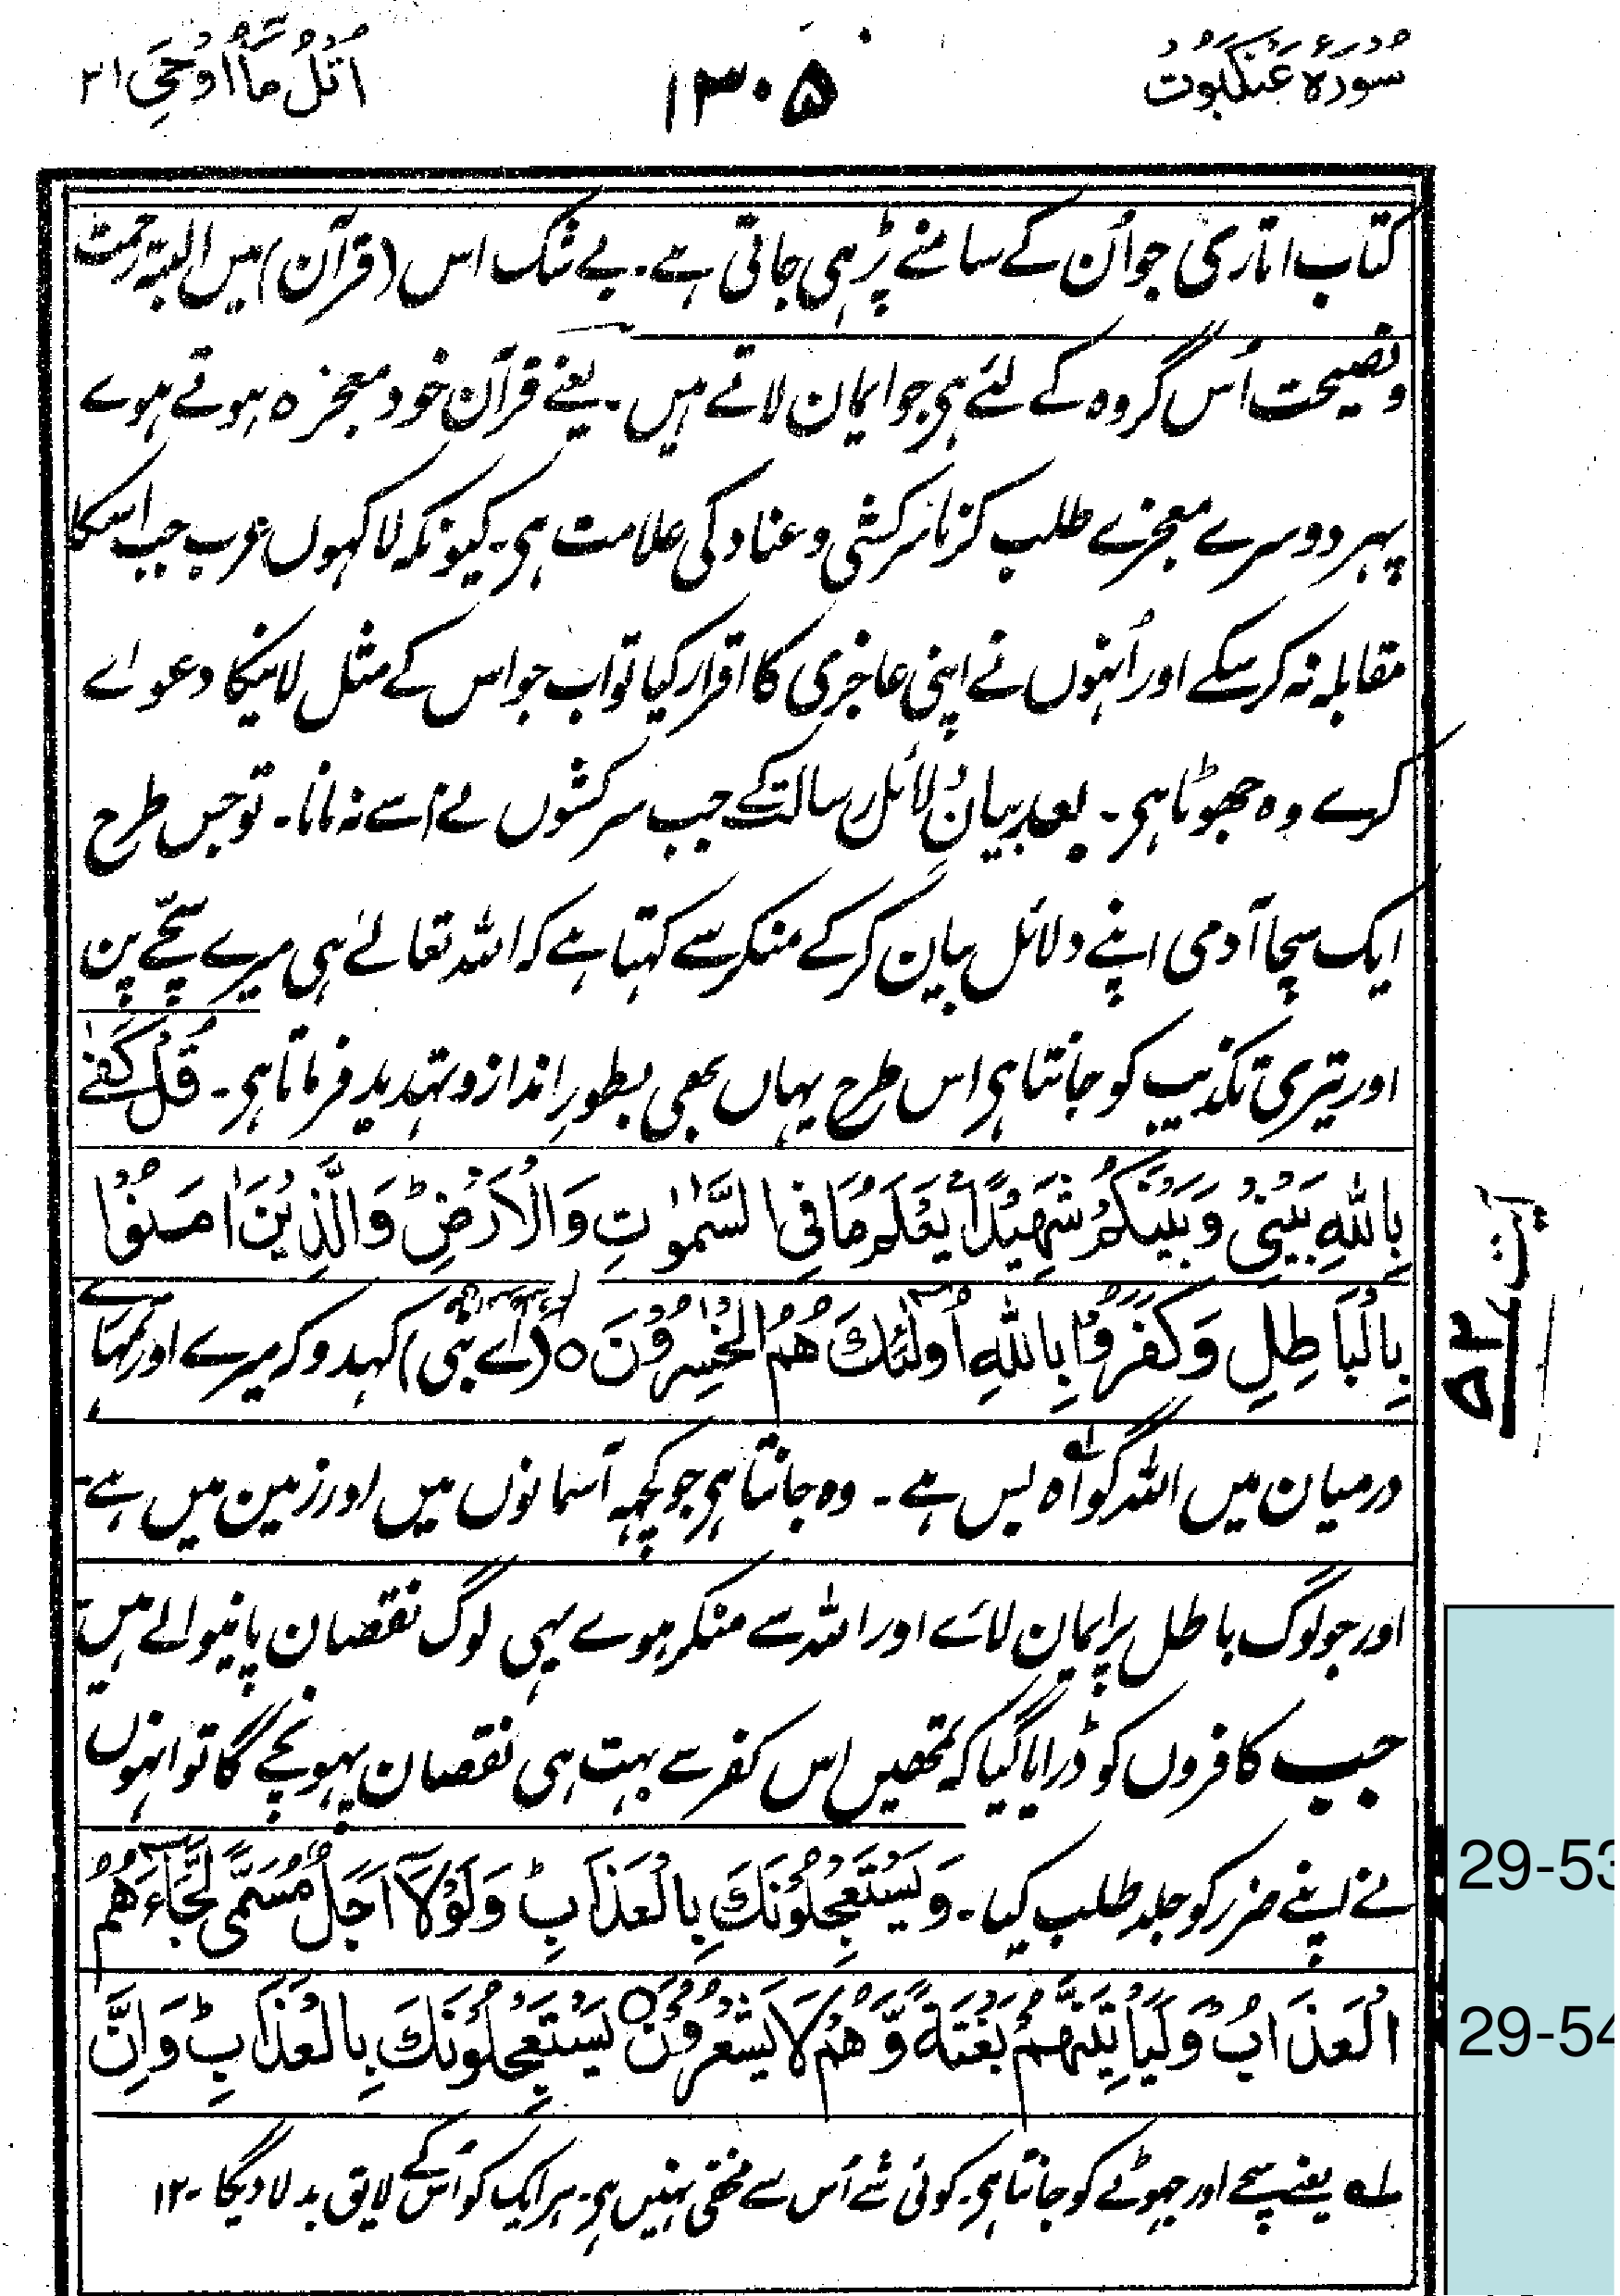 سورۂ عنکبوت
۱۳۰۵
اُتْلُ مَآ اُوْحِیَ ۲۱
کتاب اتاری جو اُن کے سامنے پڑہی جاتی ہے۔ بے شک اس (قرآن) میں البتہ رحمت
و نصیحت اُس گروہ کے لئے ہی جو ایمان لاتے ہیں۔ یعنے قرآن خود معجزہ ہوتے ہوے
پہر دوسرے معجزے طلب کرنا سرکشی و عناد کی علامت ہی۔ کیونکہ لاکہوں عرب جب اسکا
مقابلہ نہ کرسکے اور اُنہوں نے اپنی عاجزی کا اقرار کیا تو اب جو اس کے مثل لانیکا دعواے
کرے وہ جھوٹا ہی۔ بعد بیانِ دلائل رسالت کے جب سرکشوں نے اسے نہ مانا۔ تو جس طرح
ایک سچا آدمی اپنے دلائل بیان کرکے منکر سے کہتا ہے کہ اللہ تعالےٰ ہی میرے سچّے پن
اور تیری تکذیب کو جانتا ہی اس طرح یہاں بھی بطورِ انذار و تہدید فرماتا ہی۔ قُلْ کَفٰے
بِاللّٰهِ بَيْنِيْ وَبَيْنَكُمْ شَهِيْدًا يَعْلَمُ مَا فِي السَّمٰوٰتِ وَالْاَرْضِ ؕ وَالَّذِيْنَ اٰمَنُوْا
بِالْبَاطِلِ وَكَفَرُوْا بِاللّٰهِ اُولٰٓئِكَ هُمُ الْخٰسِرُوْنَ ○ (اے نبی) کہدو کہ میرے اور تمہارے
درمیان میں اللہ گواہ لہ بس ہے۔ وہ جانتا ہی جو کچہہ آسمانوں میں اور زمین میں ہے۔
اور جو لوگ باطل پر ایمان لاۓ اور اللہ سے منکر ہوے یہی لوگ نقصان پانیوالے ہیں۔
جب کافروں کو ڈرایا گیا کہ تمھیں اس کفر سے بہت ہی نقصان پہونچے گا تو انہوں
نے اپنے ضرر کو جلد طلب کیا۔ وَيَسْتَعْجِلُوْنَكَ بِالْعَذَابِ ؕ وَلَوْلَآ اَجَلٌ مُّسَمًّى لَّجَآءَهُمُ
الْعَذَابُ ؕ وَلَيَاْتِيَنَّهُمْ بَغْتَةً وَّهُمْ لَا يَشْعُرُوْنَ ○ يَسْتَعْجِلُوْنَكَ بِالْعَذَابِ ؕ وَاِنَّ
لہ یعنے سچے اور جہوٹے کو جانتا ہی۔ کوئی شے اُس سے مخفی نہیں ہی۔ ہر ایک کو اُس کے لایق بدلا دیگا ۔۱۲
آیت ۵۲
29-53
29-54